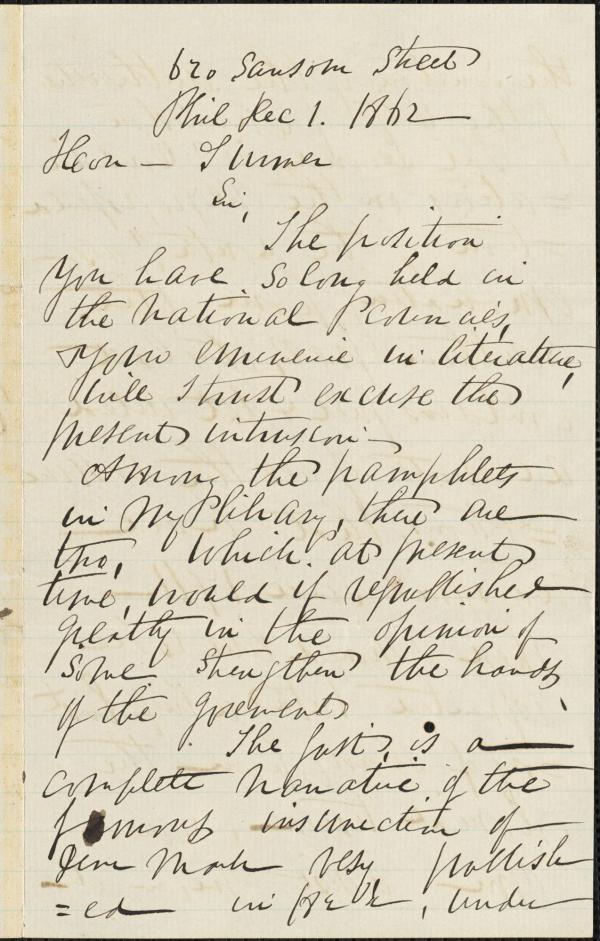 620 Sansom Street
Phil Dec 1. 1862
Hon — Sumner
Sir,
The position
you have so long held in
the National Councils,
your eminence in literature,
will I trust excuse the
present intrusion —
Among the pamphlets
in my library, there are
two, which at present
time, would if republished
greatly in the opinion of
some strengthen the hands
of the goverment
The first, is a
complete narrative of the
famous insurrection of
Denmark Vesy, publish
=ed in, under